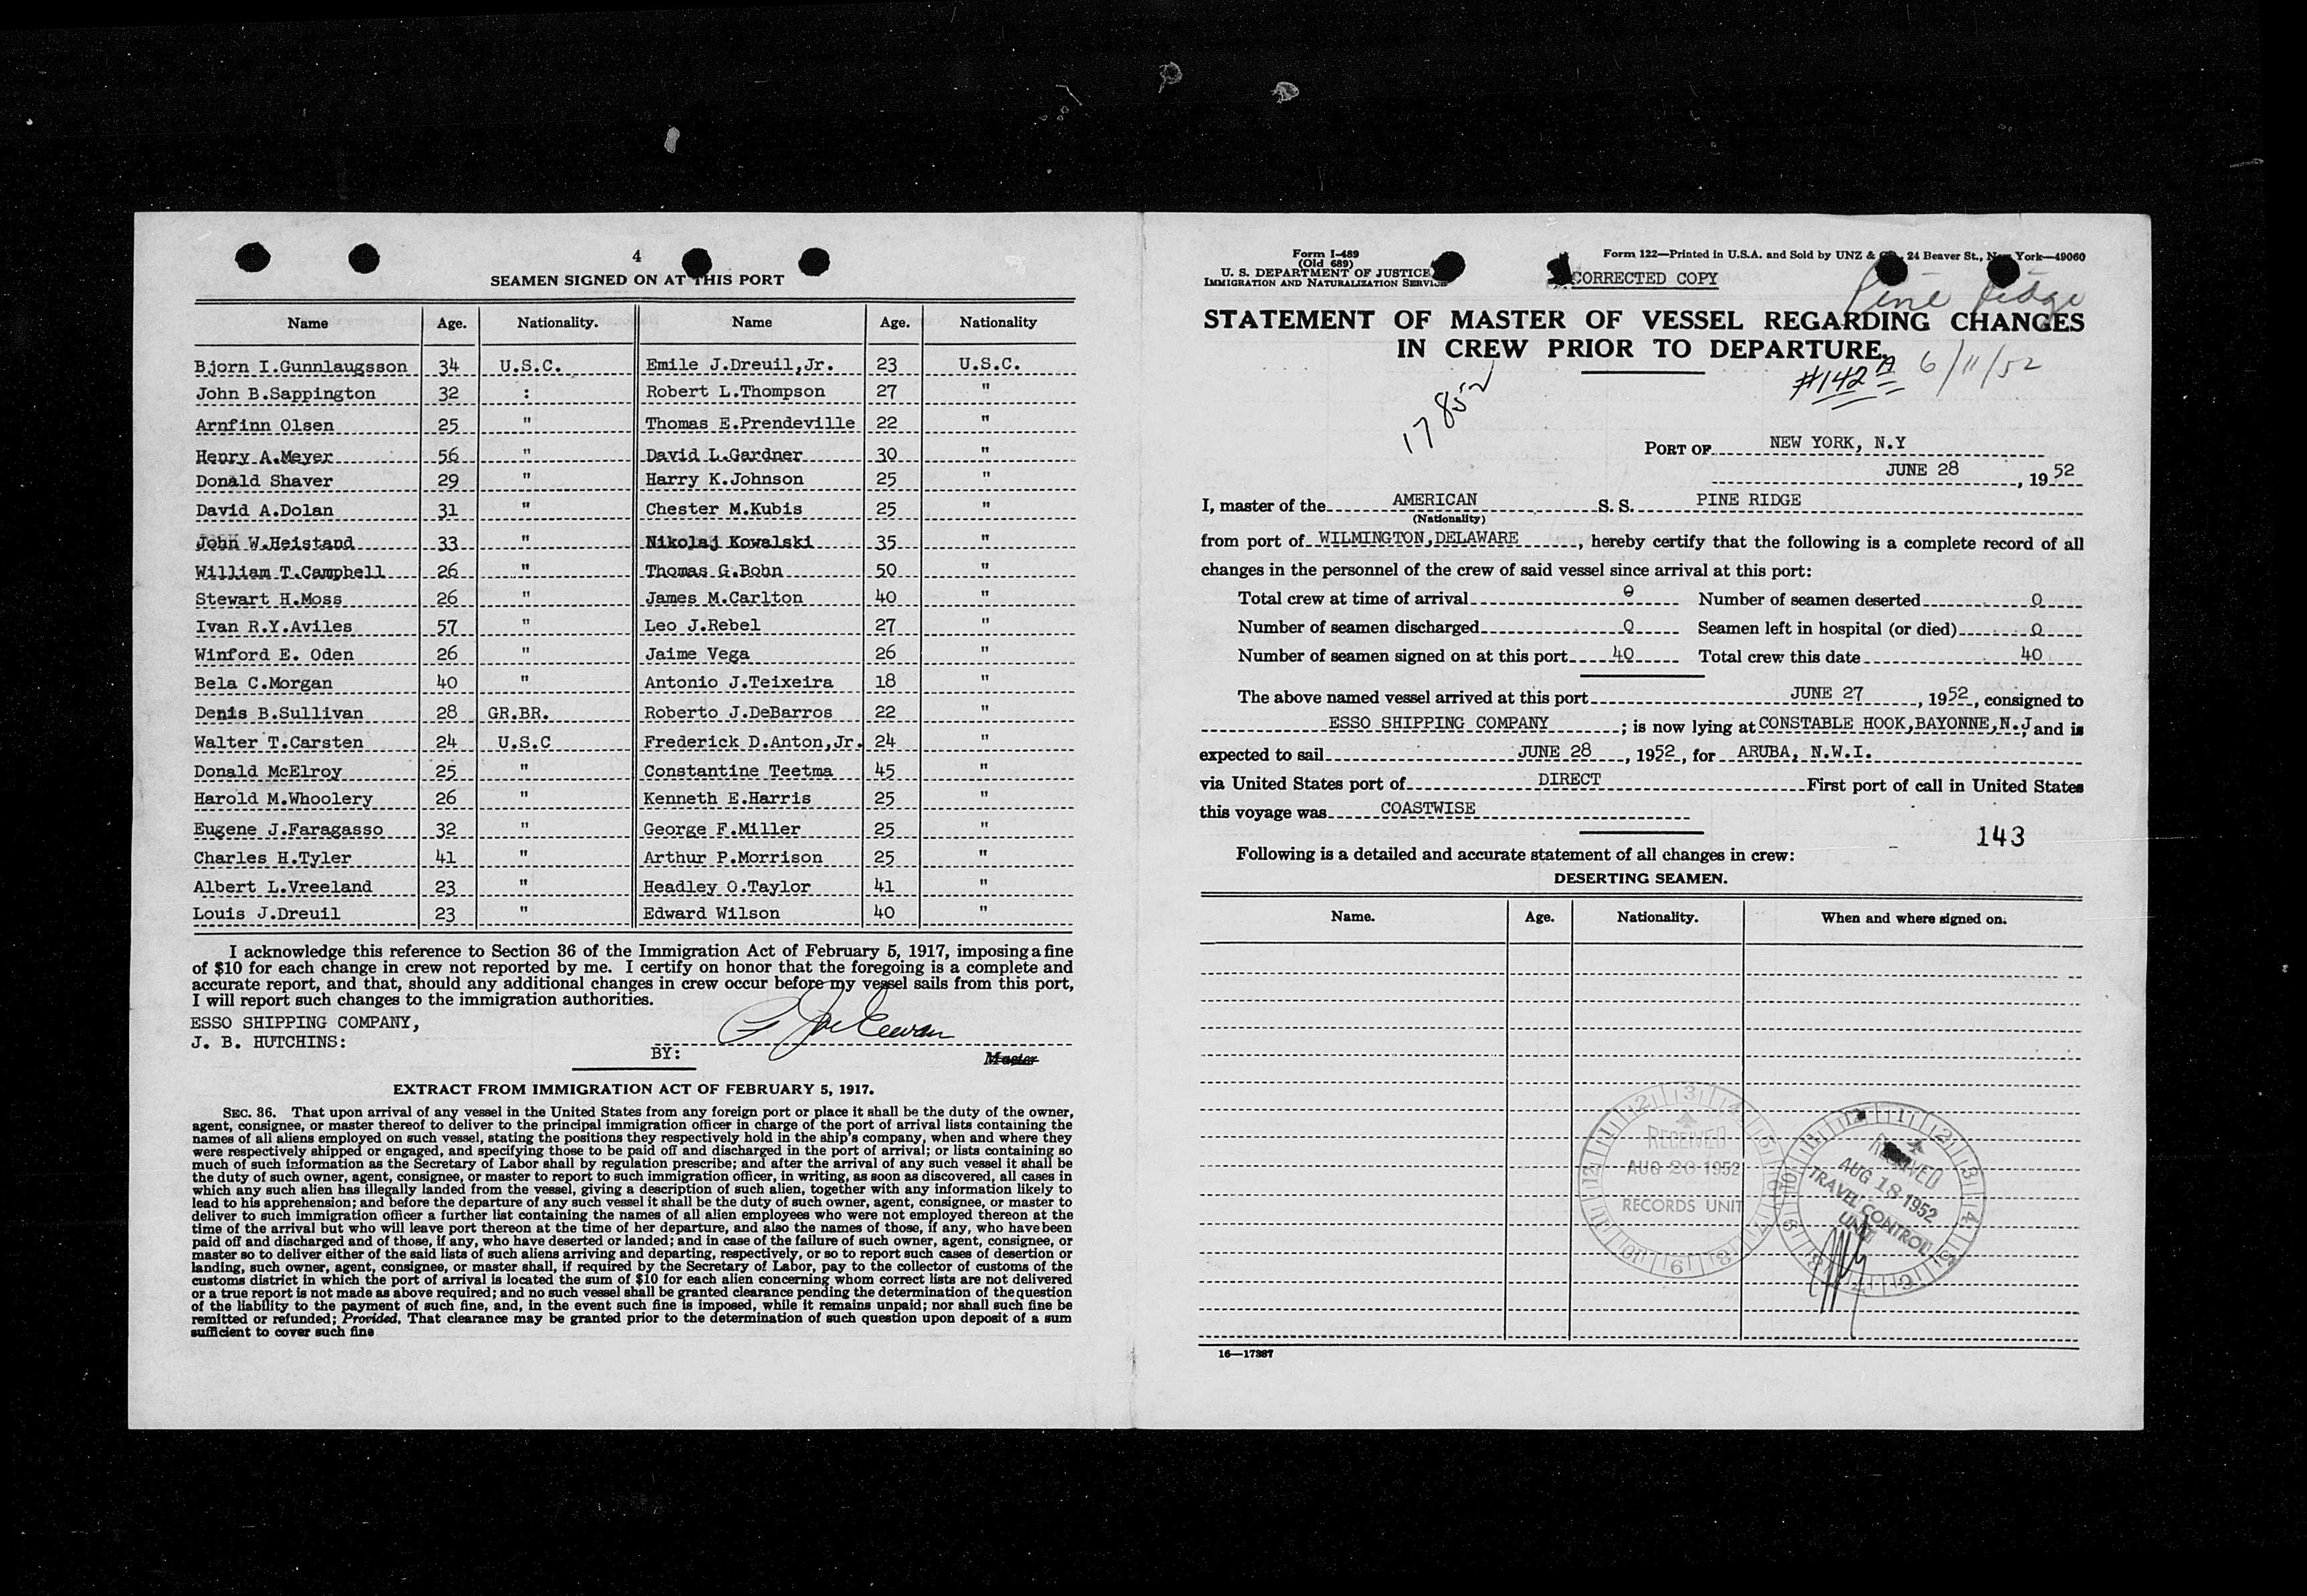 4
SEAMEN SIGNED ON AT THIS PORT
Name Age. Nationality. Name Age. Nationality
Bjorn I.Gunnlaugsson 34 U.S.C. Emile J.Dreuil,Jr. 23 U.S.C.
John B.Sappington 32 : Robert L.Thompson 27 "
Arnfinn Olsen 25 " Thomas E.Prendeville 22 "
Henry A.Meyer 56 " David L.Gardner 30 "
Donald Shaver 29 " Harry K.Johnson 25 "
David A.Dolan 31 " Chester M.Kubis 25 "
John W.Heistand 33 " Nikolaj Kowalski 35 "
William T.Campbell 26 " Thomas G.Bohn 50 "
Stewart H.Moss 26 " James M.Carlton 40 "
Ivan R.Y.Aviles 57 " Leo J.Rebel 27 "
Winford E. Oden 26 " Jaime Vega 26 "
Bela C.Morgan 40 " Antonio J.Teixeira 18 "
Denis B.Sullivan 28 GR.BR. Roberto J.DeBarros 22 "
Walter T.Carsten 24 U.S.C Frederick D.Anton,Jr. 24 "
Donald McElroy 25 " Constantine Teetma 45 "
Harold M.Whoolery 26 " Kenneth E.Harris 25 "
Eugene J.Faragasso 32 " George F.Miller 25 "
Charles H.Tyler 41 " Arthur P.Morrison 25 "
Albert L.Vreeland 23 " Headley O.Taylor 41 "
Louis J.Dreuil 23 " Edward Wilson 40 "
I acknowledge this reference to Section 36 of the Immigration Act of February 5, 1917, imposing a fine
of $10 for each change in crew not reported by me. I certify on honor that the foregoing is a complete and
accurate report, and that, should any additional changes in crew occur before my vessel sails from this port,
I will report such changes to the immigration authorities.
ESSO SHIPPING COMPANY,
J. B. HUTCHINS:
BY:
Master
EXTRACT FROM IMMIGRATION ACT OF FEBRUARY 5, 1917.
SEC. 36. That upon arrival of any vessel in the United States from any foreign port or place it shall be the duty of the owner,
agent, consignee, or master thereof to deliver to the principal immigration officer in charge of the port of arrival lists containing the
names of all aliens employed on such vessel, stating the positions they respectively hold in the ship's company, when and where they
were respectively shipped or engaged, and specifying those to be paid off and discharged in the port of arrival; or lists containing so
much of such information as the Secretary of Labor shall by regulation prescribe; and after the arrival of any such vessel it shall be
the duty of such owner, agent, consignee, or master to report to such immigration officer, in writing, as soon as discovered, all cases in
which any such alien has illegally landed from the vessel, giving a description of such alien, together with any information likely to
lead to his apprehension; and before the departure of any such vessel it shall be the duty of such owner, agent, consignee, or master to
deliver to such immigration officer a further list containing the names of all alien employees who were not employed thereon at the
time of the arrival but who will leave port thereon at the time of her departure, and also the names of those, if any, who have been
paid off and discharged and of those, if any, who have deserted or landed; and in case of the failure of such owner, agent, consignee, or
master so to deliver either of the said lists of such aliens arriving and departing, respectively, or so to report such cases of desertion or
landing, such owner, agent, consignee, or master shall, if required by the Secretary of Labor, pay to the collector of customs of the
customs district in which the port of arrival is located the sum of $10 for each alien concerning whom correct lists are not delivered
or a true report is not made as above required; and no such vessel shall be granted clearance pending the determination of the question
of the liability to the payment of such fine, and, in the event such fine is imposed, while it remains unpaid; nor shall such fine be
remitted or refunded; Provided, That clearance may be granted prior to the determination of such question upon deposit of a sum
sufficient to cover such fine
Form I-489
(Old 689)
U. S. DEPARTMENT OF JUSTICE
IMMIGRATION AND NATURALIZATION SERVICE
CORRECTED COPY
Form 122—Printed in U.S.A. and Sold by UNZ & Co., 24 Beaver St., New York—49060
Pine Ridge
STATEMENT OF MASTER OF VESSEL REGARDING CHANGES
IN CREW PRIOR TO DEPARTURE.
#142 A 6/11/52
17852
PORT OF NEW YORK, N.Y
JUNE 28, 1952
I, master of the AMERICAN S. S. PINE RIDGE
(Nationality)
from port of WILMINGTON,DELAWARE, hereby certify that the following is a complete record of all
changes in the personnel of the crew of said vessel since arrival at this port:
Total crew at time of arrival 0 Number of seamen deserted 0
Number of seamen discharged 0 Seamen left in hospital (or died) 0
Number of seamen signed on at this port 40 Total crew this date 40
The above named vessel arrived at this port JUNE 27, 1952, consigned to
ESSO SHIPPING COMPANY; is now lying at CONSTABLE HOOK,BAYONNE,N.J, and is
expected to sail JUNE 28, 1952, for ARUBA, N.W.I.
via United States port of DIRECT First port of call in United States
this voyage was COASTWISE
143
Following is a detailed and accurate statement of all changes in crew:
DESERTING SEAMEN.
Name. Age. Nationality. When and where signed on.
RECEIVED
AUG 20 1952
RECORDS UNIT
RECEIVED
AUG 18 1952
TRAVEL CONTROL
UNIT
16—17387